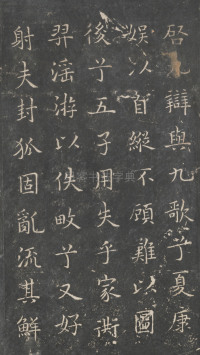 启九辯與九歌兮夏康
娛以自縱不顧難以圖
後兮五子用失乎家衖
羿滛游以佚畋兮又好
射夫封狐固亂流其鮮